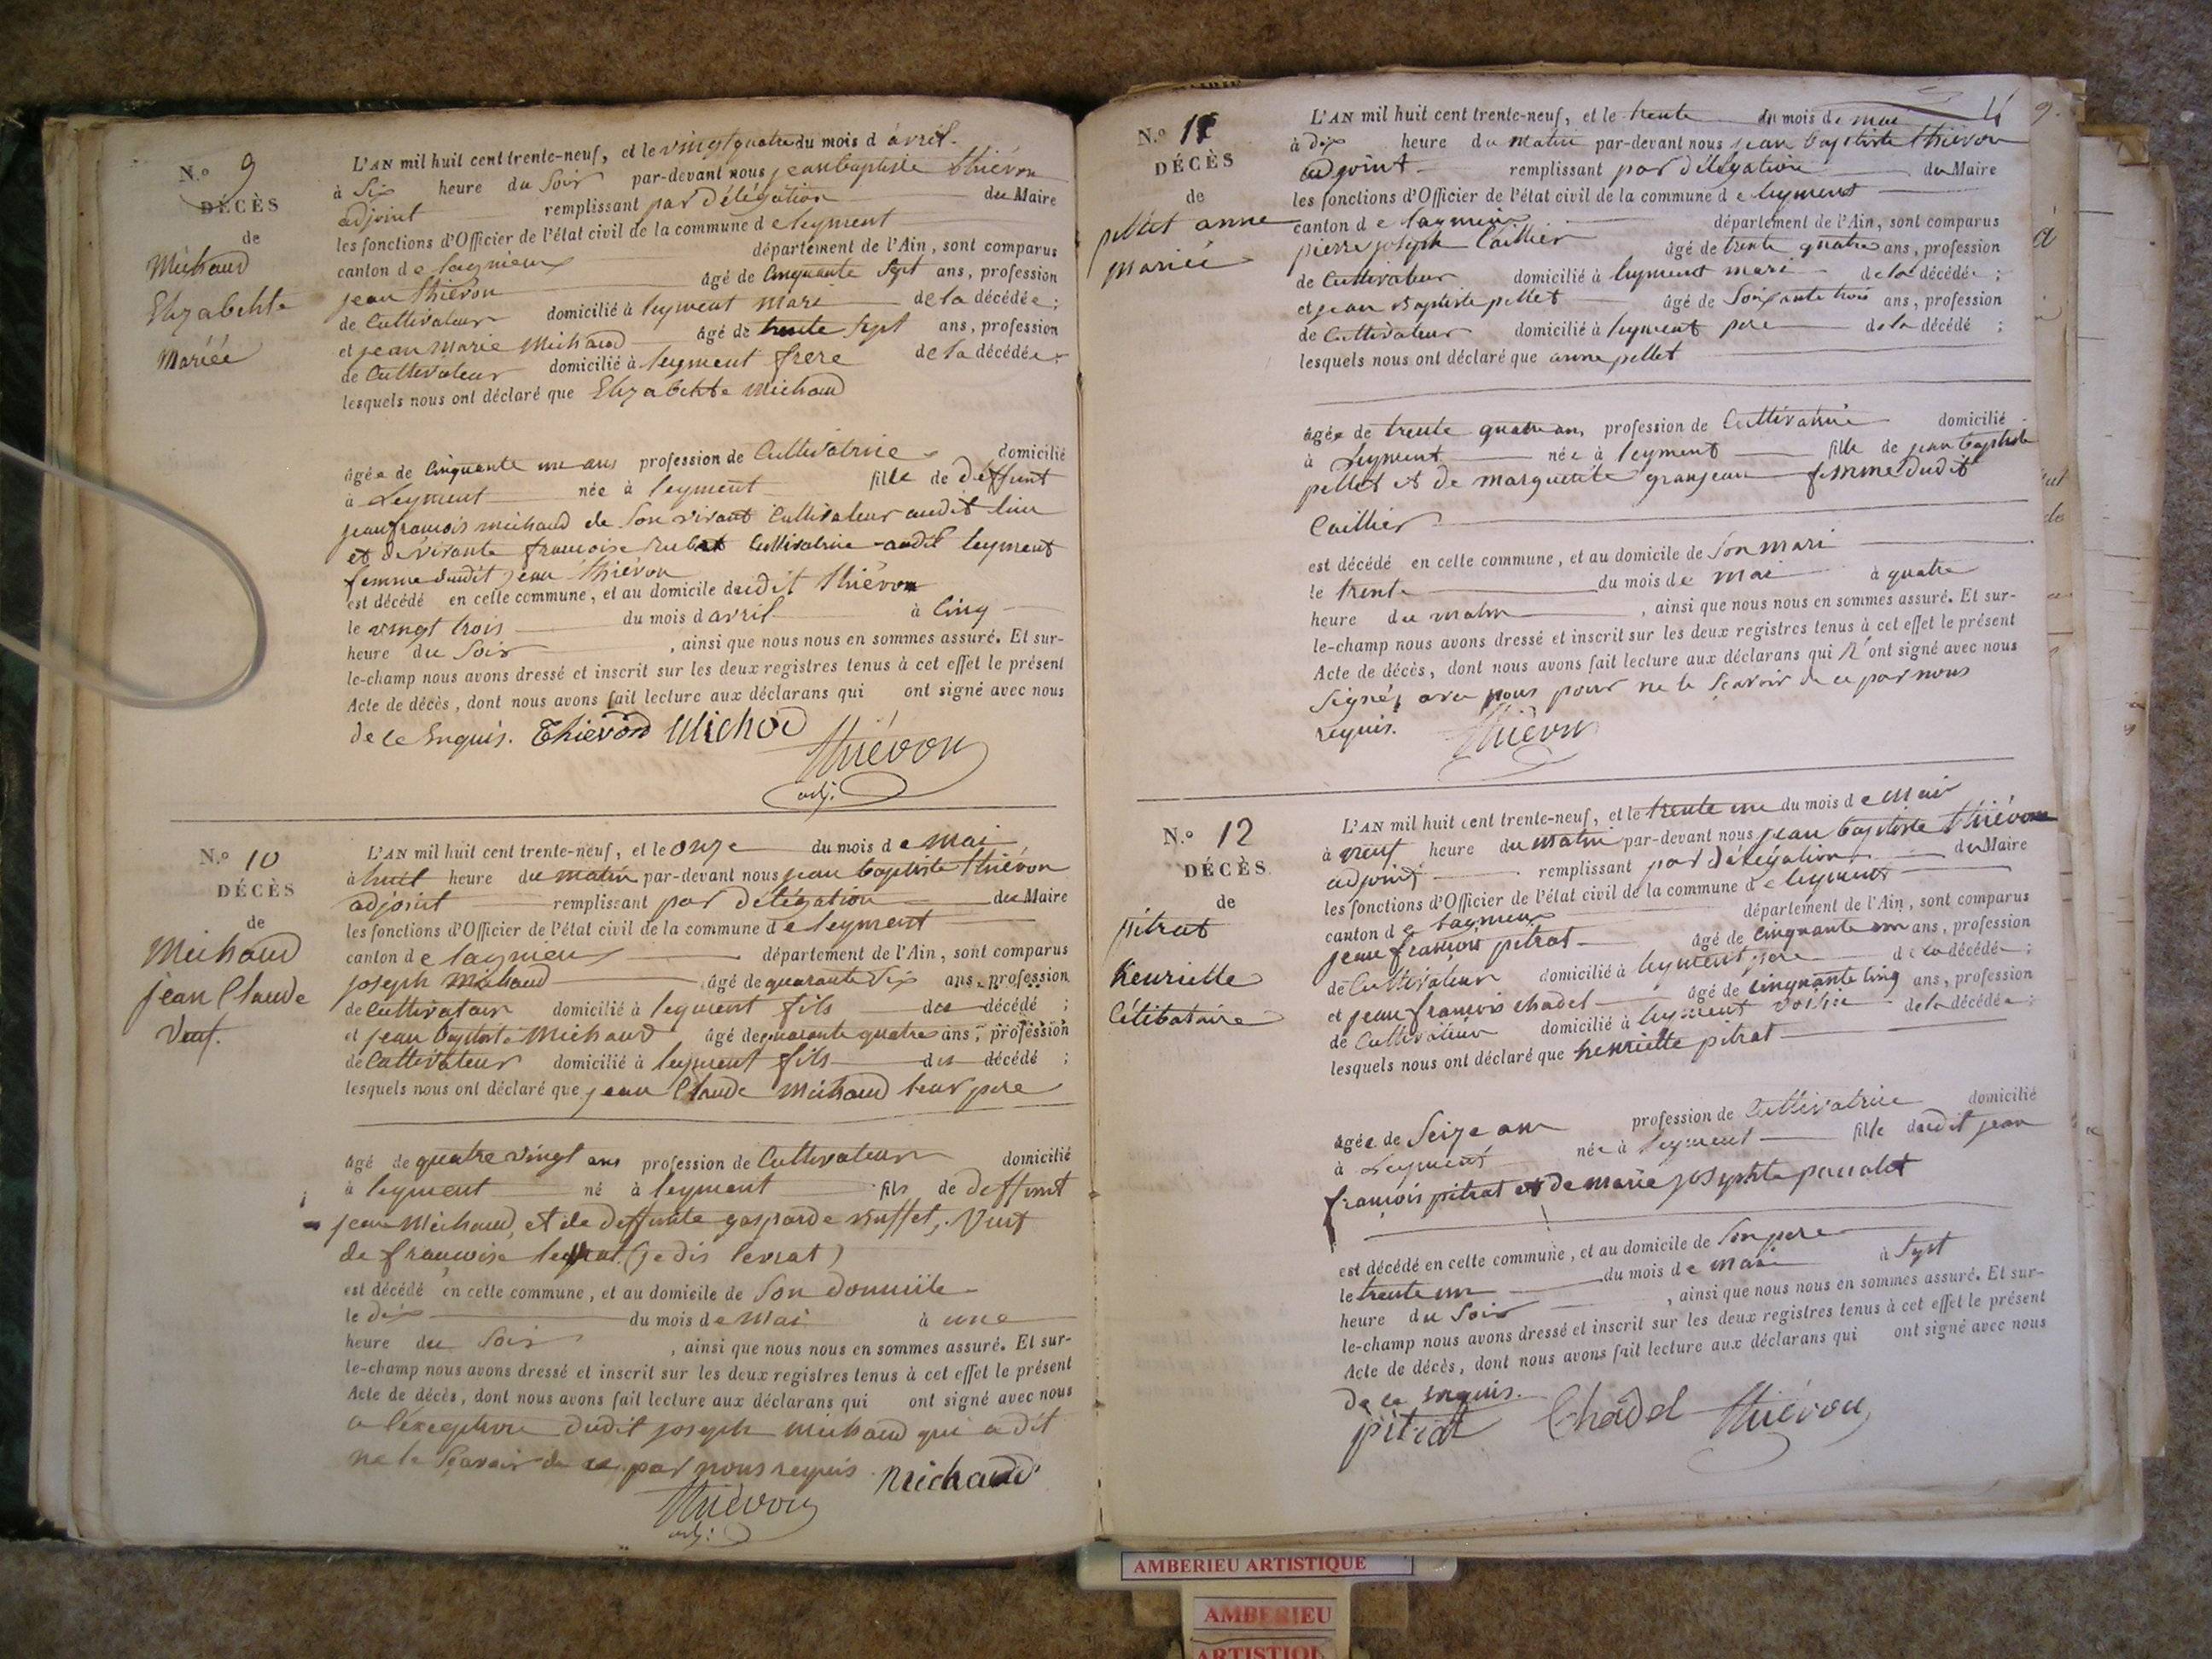 N.o 9
DÉCÈS
de
Michaud
Elizabehte
Mariée
L'AN mil huit cent trente-neuf, et le vingt quatre du mois d avril.
à Six heure du Soir par-devant nous jean baptiste thiévon
adjoint remplissant par délégation du Maire
les fonctions d'Officier de l'état civil de la commune d e leyment
canton d e lagnieux département de l'Ain, sont comparus
jean thiévon âgé de Cinquante Sept ans, profession
de Cultivateur domicilié à leyment mari de la décédée ;
et jean marie michaud âgé de trente Sept ans, profession
de Cultivateur domicilié à leyment frere de la décédée ;
lesquels nous ont déclaré que Elizabehte Michaud
âgée de Cinquante une ans profession de Cultivatrice domicilié
à Leyment née à leyment fille de deffunt
jean francois michaud de Son vivant Cultivateur audit lieu
et de vivante francoise Cultivatrice audit leyment
femme dudit jean thiévon
est décédé en celle commune, et au domicile dudit thiévon
le vingt trois du mois d avril à Cinq
heure du Soir , ainsi que nous nous en sommes assuré. Et sur-
le-champ nous avons dressé et inscrit sur les deux registres tenus à cet effet le présent
Acte de décès, dont nous avons fait lecture aux déclarans qui ont signé avec nous
de ce Enquis. Thievon Michod
thiévon
adj.
N.o 10
DÉCÈS
de
Michaud
jean Claude
Veuf.
L'AN mil huit cent trente-neuf, et le onze du mois d e mai
à huit heure du matin par-devant nous jean baptiste thiévon
adjoint remplissant par délégation du Maire
les fonctions d'Officier de l'état civil de la commune d e leyment
canton d e lagnieux département de l'Ain, sont comparus
joseph Michaud âgé de quarante Six ans, profession
de Cultivateur domicilié à leyment fils du décédé ;
et jean baptiste Michaud âgé de quarante quatre ans, profession
de Cultivateur domicilié à leyment fils du décédé ;
lesquels nous ont déclaré que jean Claude Michaud leur pere
âgé de quatre vingt ans profession de Cultivateur domicilié
à leyment né à leyment fils de deffunt
jean Michaud, et de deffunte gasparde Veuf
de francoise (je dis levrat)
est décédé en celle commune, et au domicile de Son domicile
le dix du mois d e Mai à une
heure du Soir , ainsi que nous nous en sommes assuré. Et sur-
le-champ nous avons dressé et inscrit sur les deux registres tenus à cet effet le présent
Acte de décès, dont nous avons fait lecture aux déclarans qui ont signé avec nous
a l'exception dudit joseph michaud qui a dit
ne le Sçavoir de ce par nous requis. Michaud
thiévon
adj.
N.o 11
DÉCÈS
de
pellet anne
mariée
L'AN mil huit cent trente-neuf, et le trente du mois d e mai
à dix heure du matin par-devant nous jean baptiste thiévon
adjoint remplissant par délégation du Maire
les fonctions d'Officier de l'état civil de la commune d e leyment
canton d e lagnieux département de l'Ain, sont comparus
pierre joseph Caillier âgé de trente quatre ans, profession
de Cultivateur domicilié à leyment mari de la décédée ;
et jean Baptiste pellet âgé de Soixante trois ans, profession
de Cultivateur domicilié à leyment pere de la décédé ;
lesquels nous ont déclaré que anne pellet
âgée de trente quatre ans, profession de Cultivatrice domicilié
à Leyment née à leyment fille de jean baptiste
pellet et de marguerite granjean femme dudit
Caillier
est décédé en celle commune, et au domicile de Son mari
le trente du mois d e mai à quatre
heure du matin , ainsi que nous nous en sommes assuré. Et sur-
le-champ nous avons dressé et inscrit sur les deux registres tenus à cet effet le présent
Acte de décès, dont nous avons fait lecture aux déclarans qui n'ont signé avec nous
Signés avec nous pour ne le Sçavoir de ce par nous
requis. thiévon
N.o 12
DÉCÈS
de
pitrat
henriette
Célibataire
L'AN mil huit cent trente-neuf, et le trente une du mois d e Mai
à neuf heure du matin par-devant nous jean baptiste thiévon
adjoint remplissant par délégation du Maire
les fonctions d'Officier de l'état civil de la commune d e leyment
canton d e lagnieux département de l'Ain, sont comparus
jean françois pitrat âgé de Cinquante ans, profession
de Cultivateur domicilié à leyment pere de la décédée ;
et jean françois chadel âgé de Cinquante Cinq ans, profession
de Cultivateur domicilié à leyment voisin de la décédée ;
lesquels nous ont déclaré que henriette pitrat
âgée de Seize ans profession de Cultivatrice domicilié
à Leyment née à leyment fille dudit jean
françois pitrat et de marie josephte
est décédé en celle commune, et au domicile de Son pere
le trente un du mois d e mai à Sept
heure du Soir , ainsi que nous nous en sommes assuré. Et sur-
le-champ nous avons dressé et inscrit sur les deux registres tenus à cet effet le présent
Acte de décès, dont nous avons fait lecture aux déclarans qui ont signé avec nous
de ce enquis.
pitrat Chadel thiévon
AMBERIEU ARTISTIQUE
AMBERIEU
ARTISTIQUE